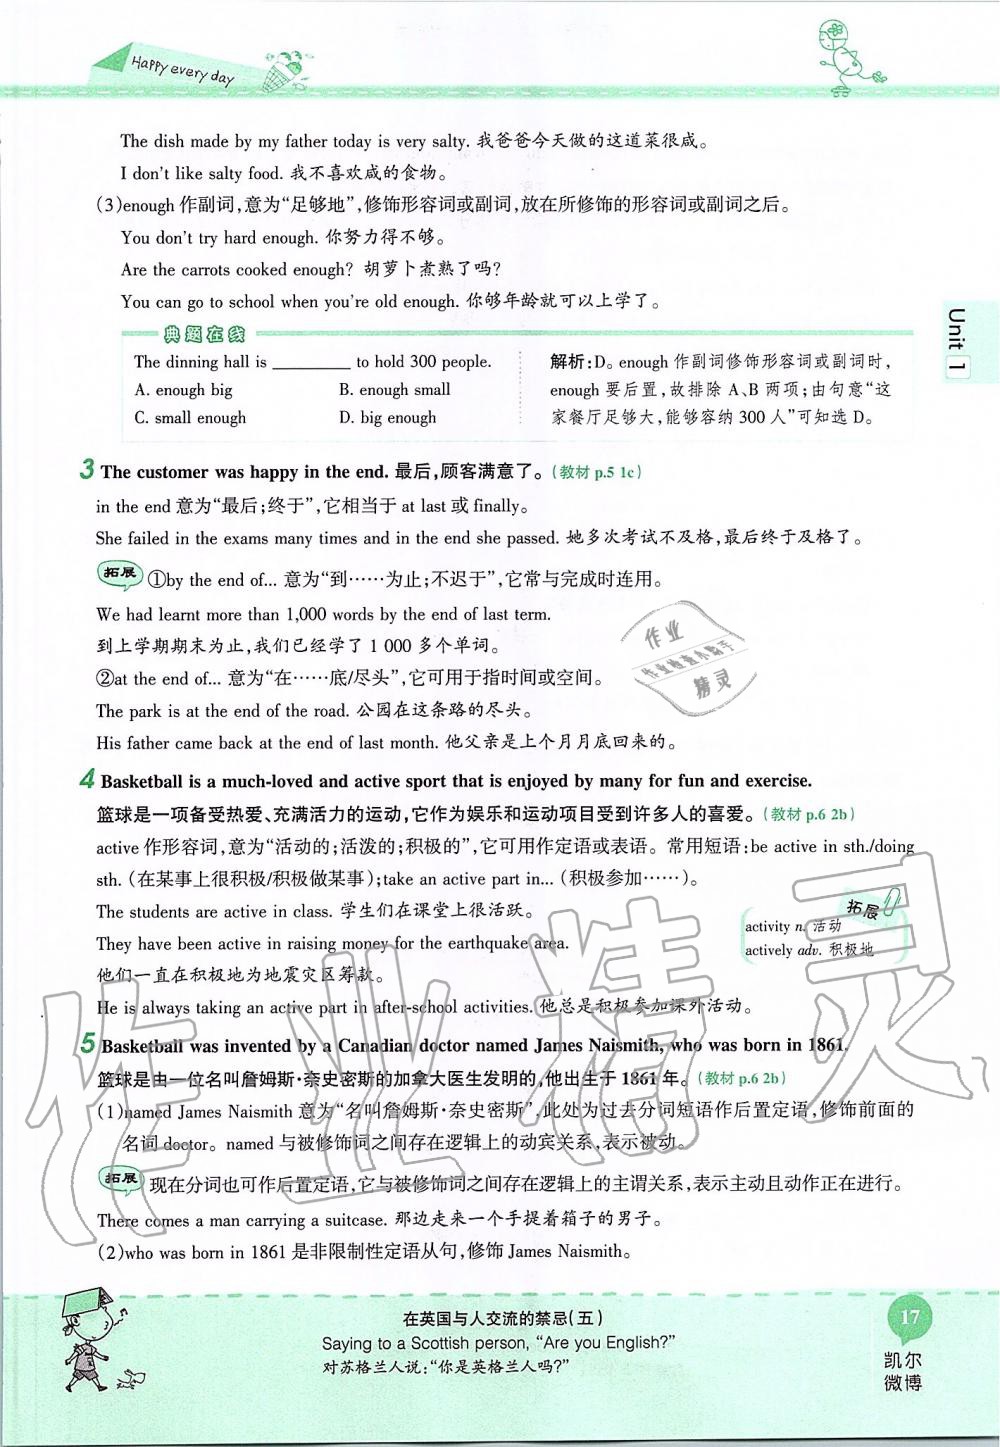 Happy every day
The dish made by my father today is very salty. 我爸爸今天做的这道菜很咸。
I don't like salty food. 我不喜欢咸的食物。
(3)enough 作副词,意为“足够地”,修饰形容词或副词,放在所修饰的形容词或副词之后。
You don't try hard enough. 你努力得不够。
Are the carrots cooked enough? 胡萝卜煮熟了吗?
You can go to school when you're old enough. 你够年龄就可以上学了。
Unit 1
典题在线
The dinning hall is __________ to hold 300 people.
A. enough big B. enough small
C. small enough D. big enough
解析:D。enough 作副词修饰形容词或副词时,
enough 要后置,故排除 A、B 两项;由句意“这
家餐厅足够大,能够容纳 300 人”可知选 D。
3 The customer was happy in the end. 最后,顾客满意了。(教材 p.5 1c)
in the end 意为“最后;终于”,它相当于 at last 或 finally。
She failed in the exams many times and in the end she passed. 她多次考试不及格,最后终于及格了。
拓展 ①by the end of... 意为“到……为止;不迟于”,它常与完成时连用。
We had learnt more than 1,000 words by the end of last term.
到上学期期末为止,我们已经学了 1 000 多个单词。
②at the end of... 意为“在……底/尽头”,它可用于指时间或空间。
The park is at the end of the road. 公园在这条路的尽头。
His father came back at the end of last month. 他父亲是上个月月底回来的。
作业
作业检查小助手
精灵
4 Basketball is a much-loved and active sport that is enjoyed by many for fun and exercise.
篮球是一项备受热爱、充满活力的运动,它作为娱乐和运动项目受到许多人的喜爱。(教材 p.6 2b)
active 作形容词,意为“活动的;活泼的;积极的”,它可用作定语或表语。常用短语:be active in sth./doing
sth. (在某事上很积极/积极做某事);take an active part in... (积极参加……)。
The students are active in class. 学生们在课堂上很活跃。
They have been active in raising money for the earthquake area.
他们一直在积极地为地震灾区筹款。
He is always taking an active part in after-school activities. 他总是积极参加课外活动。
拓展
activity n. 活动
actively adv. 积极地
5 Basketball was invented by a Canadian doctor named James Naismith, who was born in 1861.
篮球是由一位名叫詹姆斯·奈史密斯的加拿大医生发明的,他出生于 1861 年。(教材 p.6 2b)
(1)named James Naismith 意为“名叫詹姆斯·奈史密斯”,此处为过去分词短语作后置定语,修饰前面的
名词 doctor。named 与被修饰词之间存在逻辑上的动宾关系,表示被动。
拓展 现在分词也可作后置定语,它与被修饰词之间存在逻辑上的主谓关系,表示主动且动作正在进行。
There comes a man carrying a suitcase. 那边走来一个手提着箱子的男子。
(2)who was born in 1861 是非限制性定语从句,修饰 James Naismith。
作业精灵
在英国与人交流的禁忌(五)
Saying to a Scottish person, “Are you English?”
对苏格兰人说:“你是英格兰人吗?”
17
凯尔
微博